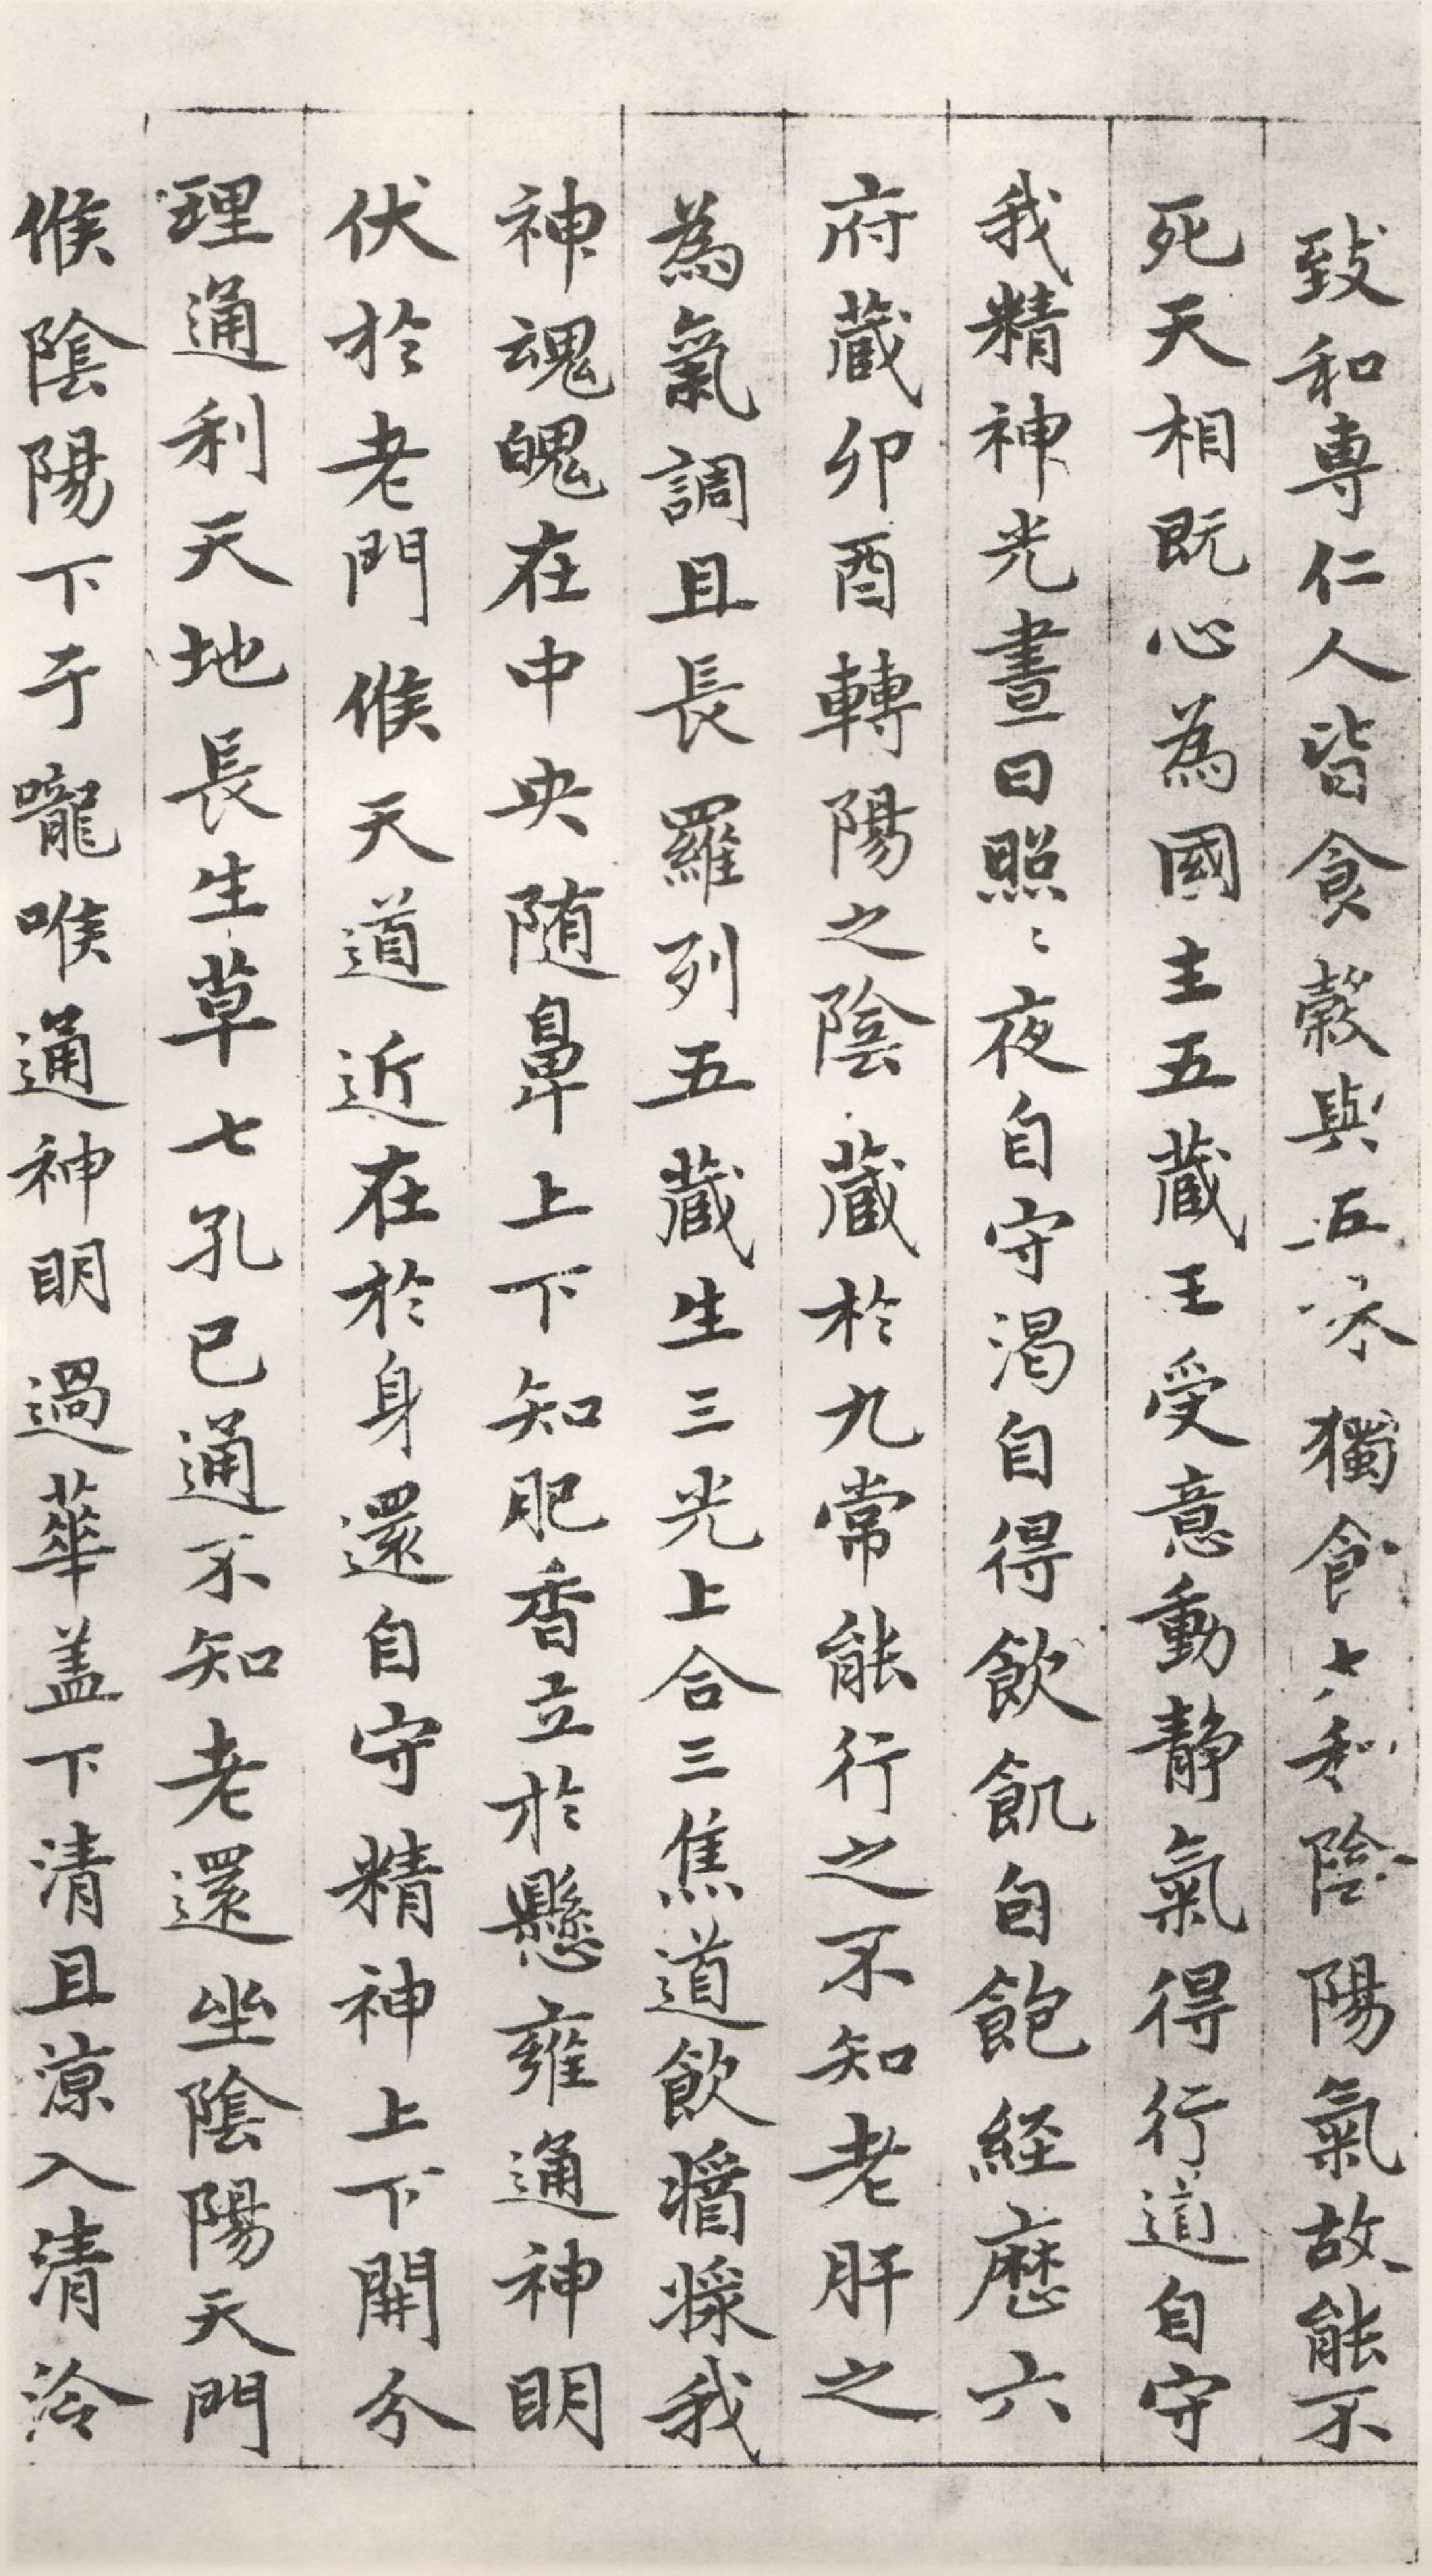 致和專仁人皆貪穀與五味獨食太和陰陽氣故能不
死天相既心為國主五藏王受意動静氣得行道自守
我精神光晝日照〻夜自守渇自得飲飢自飽経歴六
府藏卯酉轉陽之陰藏於九常能行之不知老肝之
為氣調且長羅列五藏生三光上合三焦道飲醬漿我
神魂魄在中央随鼻上下知肥香立於懸雍通神明
伏於老門候天道近在於身還自守精神上下開分
理通利天地長生草七孔已通不知老還坐陰陽天門
候陰陽下于嚨喉通神明過華盖下清且涼入清泠